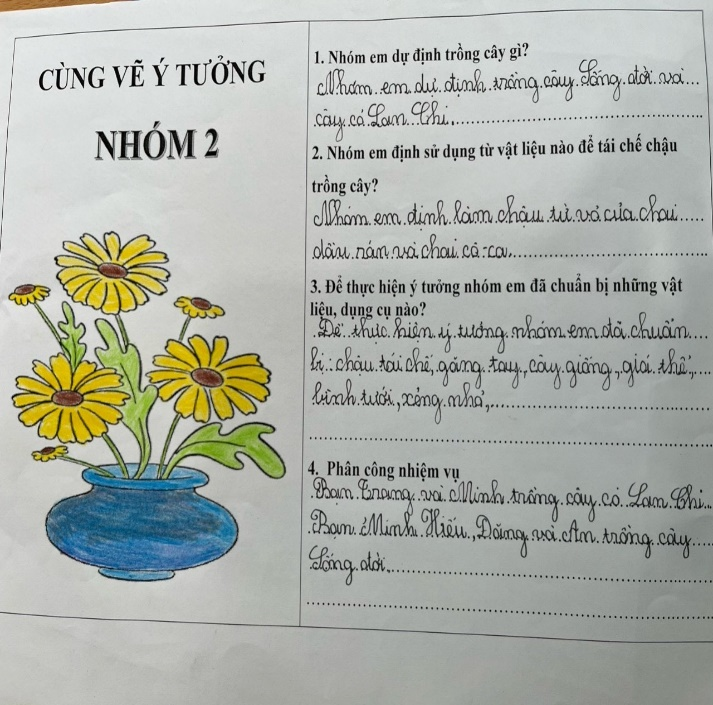 CÙNG VẼ Ý TƯỞNG
NHÓM 2
1. Nhóm em dự định trồng cây gì?
Nhóm em dự định trồng cây Sống đời và
cây cỏ Lan Chi.
2. Nhóm em định sử dụng từ vật liệu nào để tái chế chậu
trồng cây?
Nhóm em định làm chậu từ vỏ của chai
dầu rán và chai cô-ca.
3. Để thực hiện ý tưởng nhóm em đã chuẩn bị những vật
liệu, dụng cụ nào?
Để thực hiện ý tưởng nhóm em đã chuẩn
bị: chậu tái chế, găng tay, cây giống, giá thể,
bình tưới, xẻng nhỏ,
4. Phân công nhiệm vụ
Bạn Trang và Minh trồng cây cỏ Lan Chi.
Bạn Minh Hiếu, Đăng và An trồng cây
Sống đời.